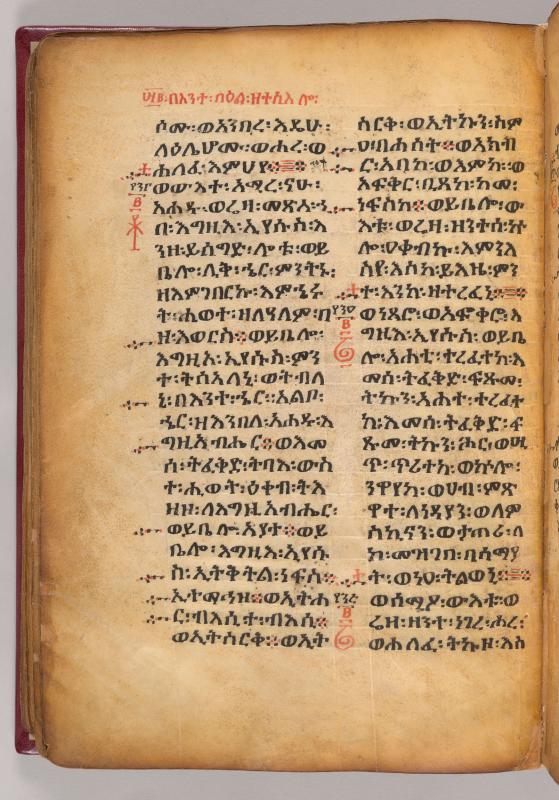 በእንተ፡ ባዕል፡ ዘተስእሎ፡
ሶሙ፡ ወአንበረ፡ እዴሁ፡
ላዕሌሆሙ፡ ወሐረ፡ ወ
ሐለፈ፡ እምህየ፡
ወውእተ፡ አሚረ፡ ናሁ፡
አሐዱ፡ ወሬዛ፡ መጽአ፡ ኀ
በ፡ እግዚእ፡ ኢየሱስ፡ እ
ንዘ፡ ይሰግድ፡ ሎቱ፡ ወይ
ቤሎ፡ ሊቅ፡ ኄር፡ ምንትኑ፡
ዘእምገበርኩ፡ እምኄሩ
ት፡ ሐወተ፡ ዘለዓለም፡ በ
ዘ፡ እወርስ፡ ወይቤሎ፡
እግዚእ፡ ኢየሱስ፡ ምን
ተ፡ ትሴአለኒ፡ ወትብለ
ኒ፡ በእንተ፡ ኄር፡ አልቦ፡
ኄር፡ ዘእንበለ፡ አሐዱ፡ እ
ግዚአብሔር፡ ወእመ
ሰ፡ ትፈቅድ፡ ትባእ፡ ውስ
ተ፡ ሒወት፡ ዕቀብ፡ ትእ
ዛዘ፡ ለእግዚአብሔር፡
ወይቤሎ፡ አያተ፡ ወይ
ቤሎ፡ እግዚእ፡ ኢየሱ
ስ፡ ኢትቅትል፡ ነፍሰ፡
ወኢትሐ
ር፡ ብእሲተ፡ ብእሲ፡
ወኢትስርቅ፡ ወኢት
ስርቅ፡ ወኢትኩን፡ ስም
ዐ፡ በሐሰት፡ ወአክብ
ር፡ አባከ፡ ወእምከ፡ ወ
አፍቅር፡ ቢጸከ፡ ከመ፡
ነፍስከ፡ ወይቤሎ፡ ው
እቱ፡ ወሬዛ፡ ዘንተሰ፡ ኵ
ሎ፡ ዐቀብኩ፡ እምንእ
ስየ፡ እስከ፡ ይእዜ፡ ምን
ት፡ እንከ፡ ዘተረፈኒ፡
ወነጸሮ፡ ወአፍቀሮ፡ እ
ግዚእ፡ ኢየሱስ፡ ወይቤ
ሎ፡ አሐቲ፡ ተረፈተከ፡ እ
መሰ፡ ትፈቅድ፡ ፍጹመ፡
ትኩን፡ አሐተ፡ ተረፈተ
ከ፡ እመሰ፡ ትፈቅድ፡ ፍ
ጹመ፡ ትኩን፡ ሖር፡ ወሢ
ጥ፡ ጥሪተከ፡ ወኵሎ፡
ንዋየከ፡ ወሀብ፡ ምጽ
ዋተ፡ ለነዳያን፡ ወለም
ስኪናን፡ ወታጠሪ፡ ለ
ከ፡ መዝገበ፡ በሰማያ
ት፡ ወነዐ፡ ትልወኒ፡
ወሰሚዖ፡ ውእቱ፡ ወ
ሬዛ፡ ዘንተ፡ ነገረ፡ ሖረ፡
ወሐለፈ፡ ትኩዞ፡ እስ